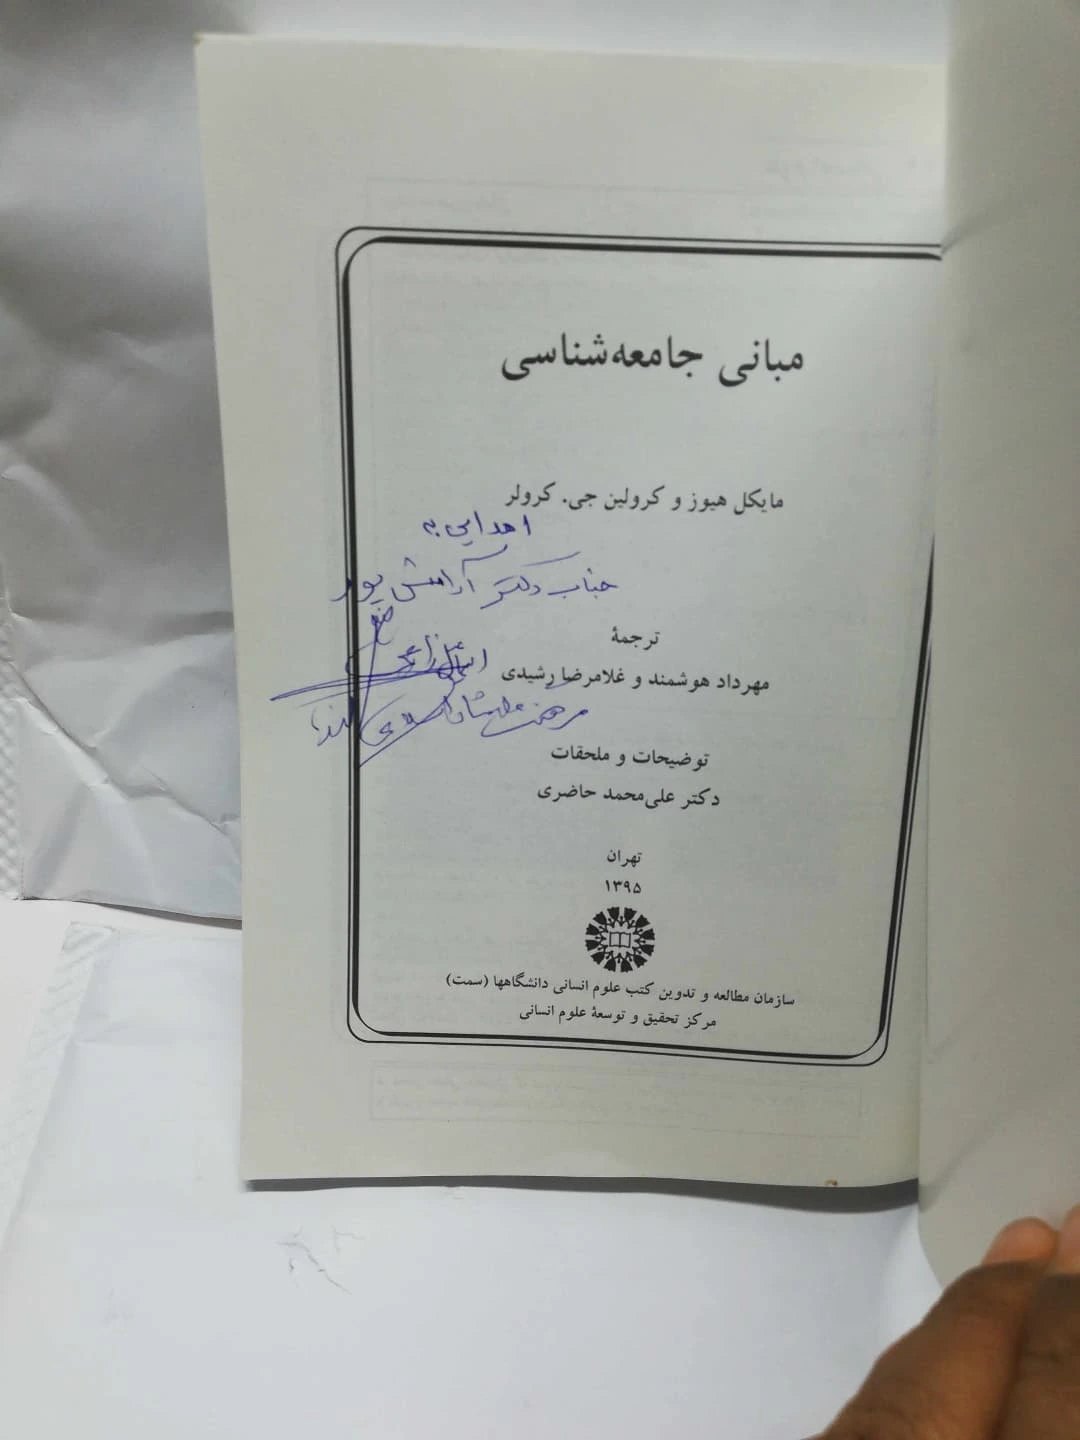 مبانی جامعه‌شناسی
مایکل هیوز و کرولین جی. کرولر
اهدایی به
جناب دکتر آرامش پور
ترجمهٔ
مهرداد هوشمند و غلامرضا رشیدی
توضیحات و ملحقات
دکتر علی‌محمد حاضری
تهران
۱۳۹۵
سازمان مطالعه و تدوین کتب علوم انسانی دانشگاهها (سمت)
مرکز تحقیق و توسعهٔ علوم انسانی